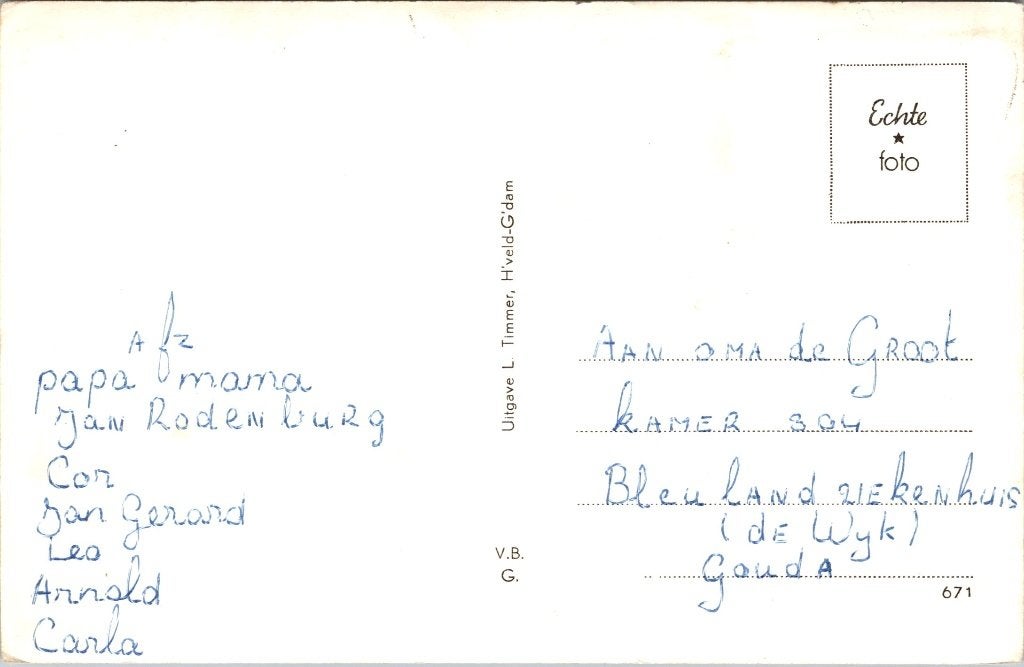 Echte
foto
Uitgave L. Timmer, H'veld-G'dam
Afz
papa mama
Jan Rodenburg
Cor
Jan Gerard
Leo
Arnold
Carla
AAN OMA de GROOt
KAMER 304
BleulAND ZIEKenhuis
(de Wyk)
GoudA
V.B.
G.
671